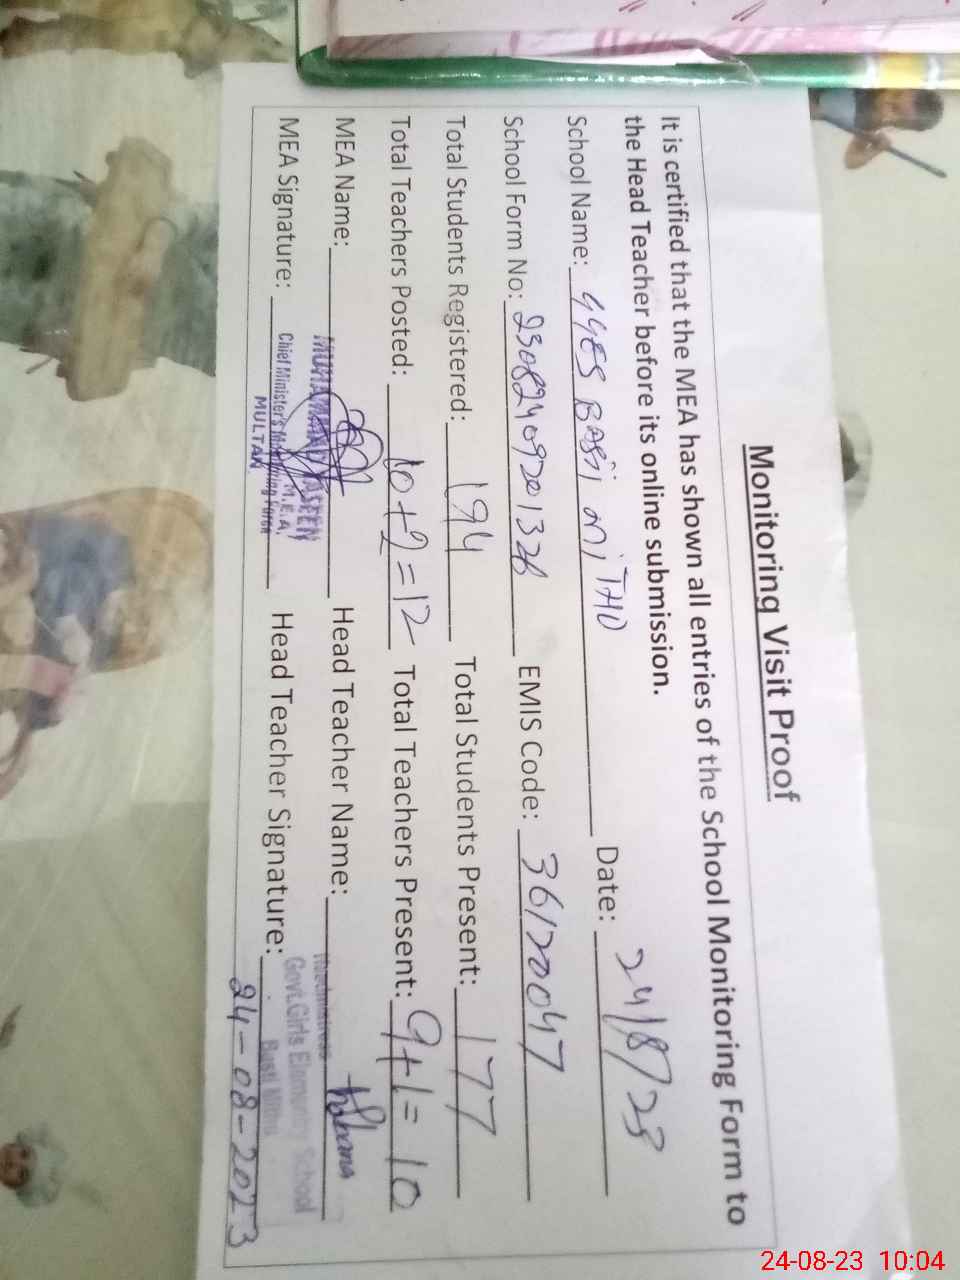 Monitoring Visit Proof
It is certified that the MEA has shown all entries of the School Monitoring Form to
the Head Teacher before its online submission.
School Name: GGES Basti MiTHU Date: 24/8/23
School Form No: 230824092013 EMIS Code: 36120047
Total Students Registered: 194 Total Students Present: 177
Total Teachers Posted: 10+2=12 Total Teachers Present: 9+1=10
MEA Name: MUHAMMAD YASEEN Head Teacher Name: Headmistress
M.E.A. Govt. Girls Elementary School
MEA Signature: Chief Minister's Monitoring Force Head Teacher Signature: Basti Mithu
MULTAN 24-08-2023
24-08-23 10:04